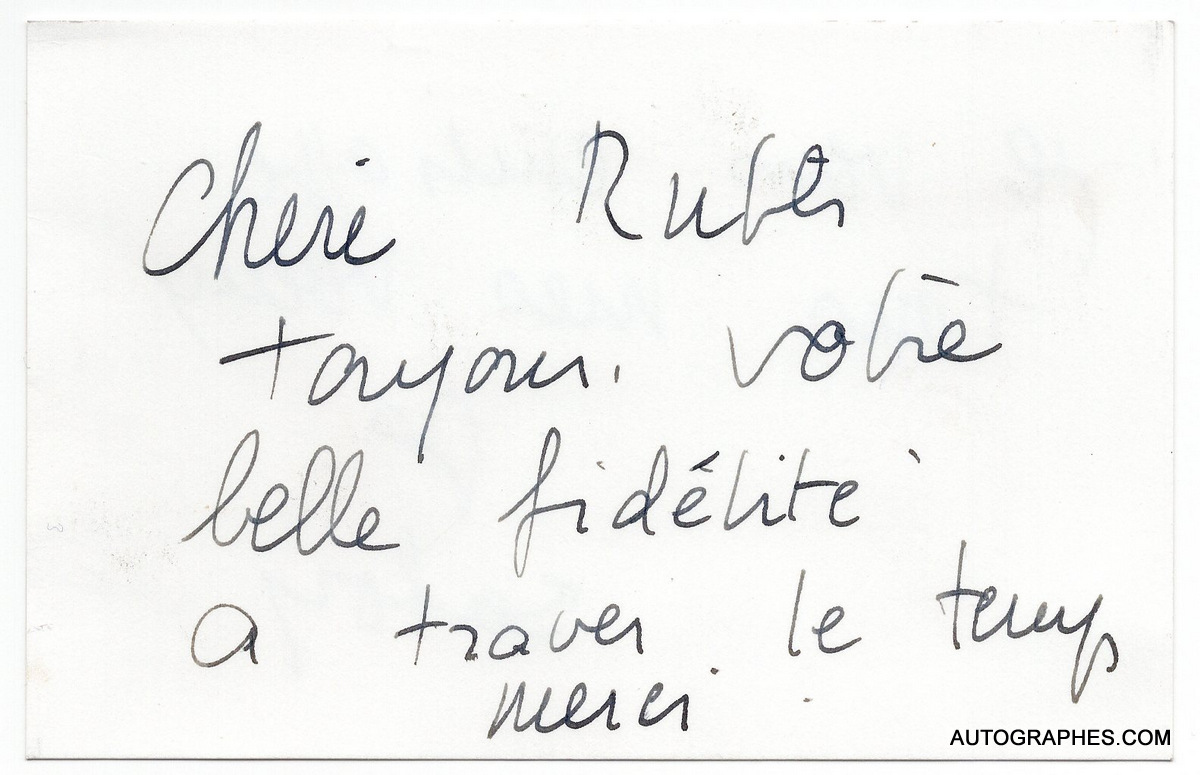 Cheri Rubens
toujours votre
belle fidélité
a travers le temps
merci.
AUTOGRAPHES.COM